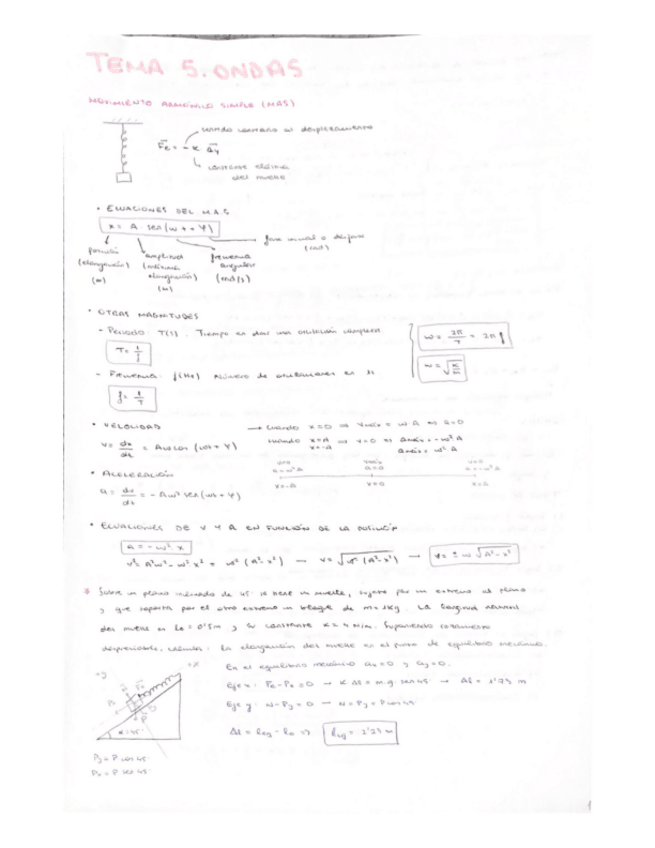 TEMA 5. ONDAS
MOVIMIENTO ARMÓNICO SIMPLE (MAS)
sentido contrario al desplazamiento
Fe = - K · Δy
constante elástica
del muelle
• ECUACIONES DEL M.A.S
x = A · sen(ωt + φ)
fase inicial o desfase
(rad)
posición
(elongación)
(m)
amplitud
(máxima
elongación)
(m)
frecuencia
angular
(rad/s)
• OTRAS MAGNITUDES
- Periodo: T(s). Tiempo en dar una oscilación completa
T = 1/f
ω = 2π/T = 2π f
- Frecuencia: f(Hz) Número de oscilaciones en 1s
f = 1/T
ω = √K/m
• VELOCIDAD
→ cuando x=0 ⇒ vmáx = ωA ⇒ a=0
v = dx/dt = Aωcos(ωt + φ)
cuando x=A ⇒ v=0 ⇒ amáx = -ω² A
x=-A amáx = ω² A
v=0 vmáx v=0
a=ω²A a=0 a=-ω²A
x=-A x=0 x=A
• ACELERACIÓN
a = dv/dt = - Aω² sen(ωt + φ)
• ECUACIONES DE V Y A EN FUNCIÓN DE LA POSICIÓN
a = - ω² · x
v² = A²ω² - ω² x² = ω² (A² - x²) → v = √ω² (A² - x²) → v = ± ω √A² - x²
Sobre un plano inclinado de 45° se tiene un muelle, sujeto por un extremo al plano
y que soporta por el otro extremo un bloque de m = 1Kg. La longitud natural
del muelle es lo = 0'5m y su constante K = 4 N/m. Suponiendo rozamiento
despreciable, calcula: la elongación del muelle en el punto de equilibrio mecánico.
En el equilibrio mecánico ax = 0 y ay = 0.
Eje x: Fe - Px = 0 → K Δl = m·g·sen45° → Δl = 1'73 m
Eje y: N - Py = 0 → N = Py = P cos45°
Δl = leq - lo ⇒ leq = 2'23 m
+y
+x
α = 45°
Py = P cos 45°
Px = P sen 45°